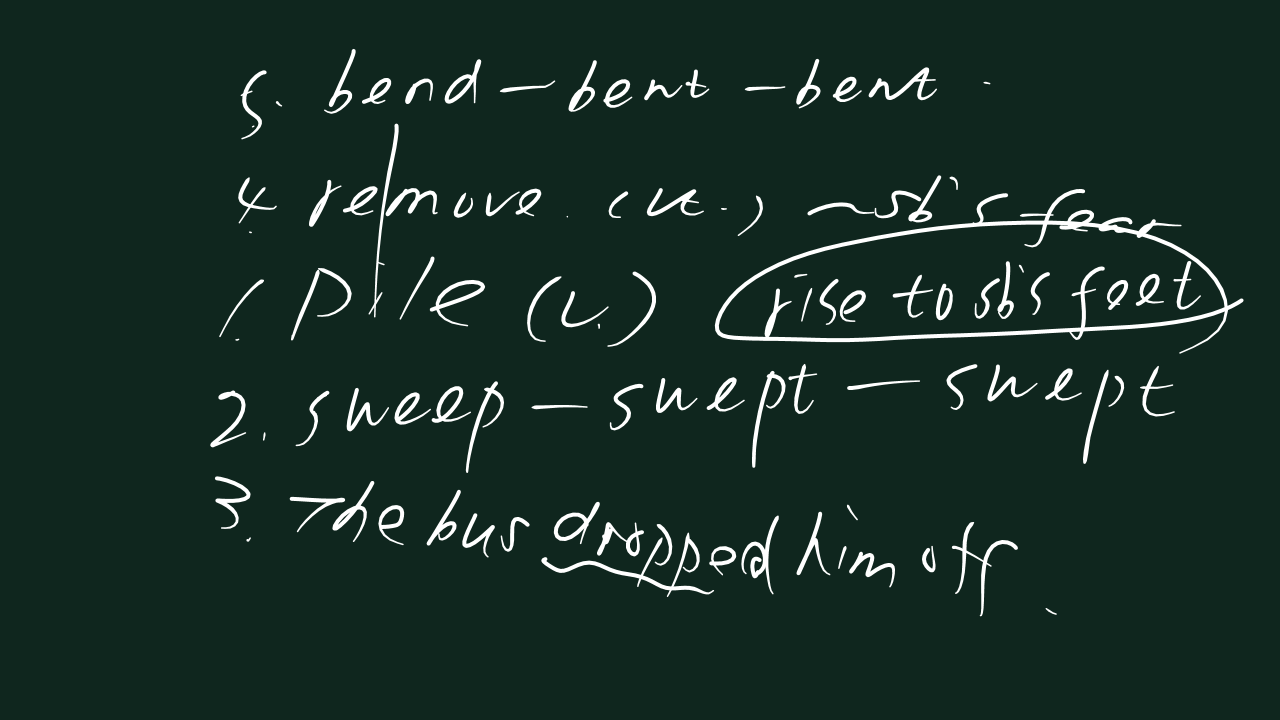 5. bend - bent - bent.
4. remove. (vt.) ~sb's fear
1. pile (v.) rise to sb's feet
2. sweep - swept - swept
3. The bus dropped him off.